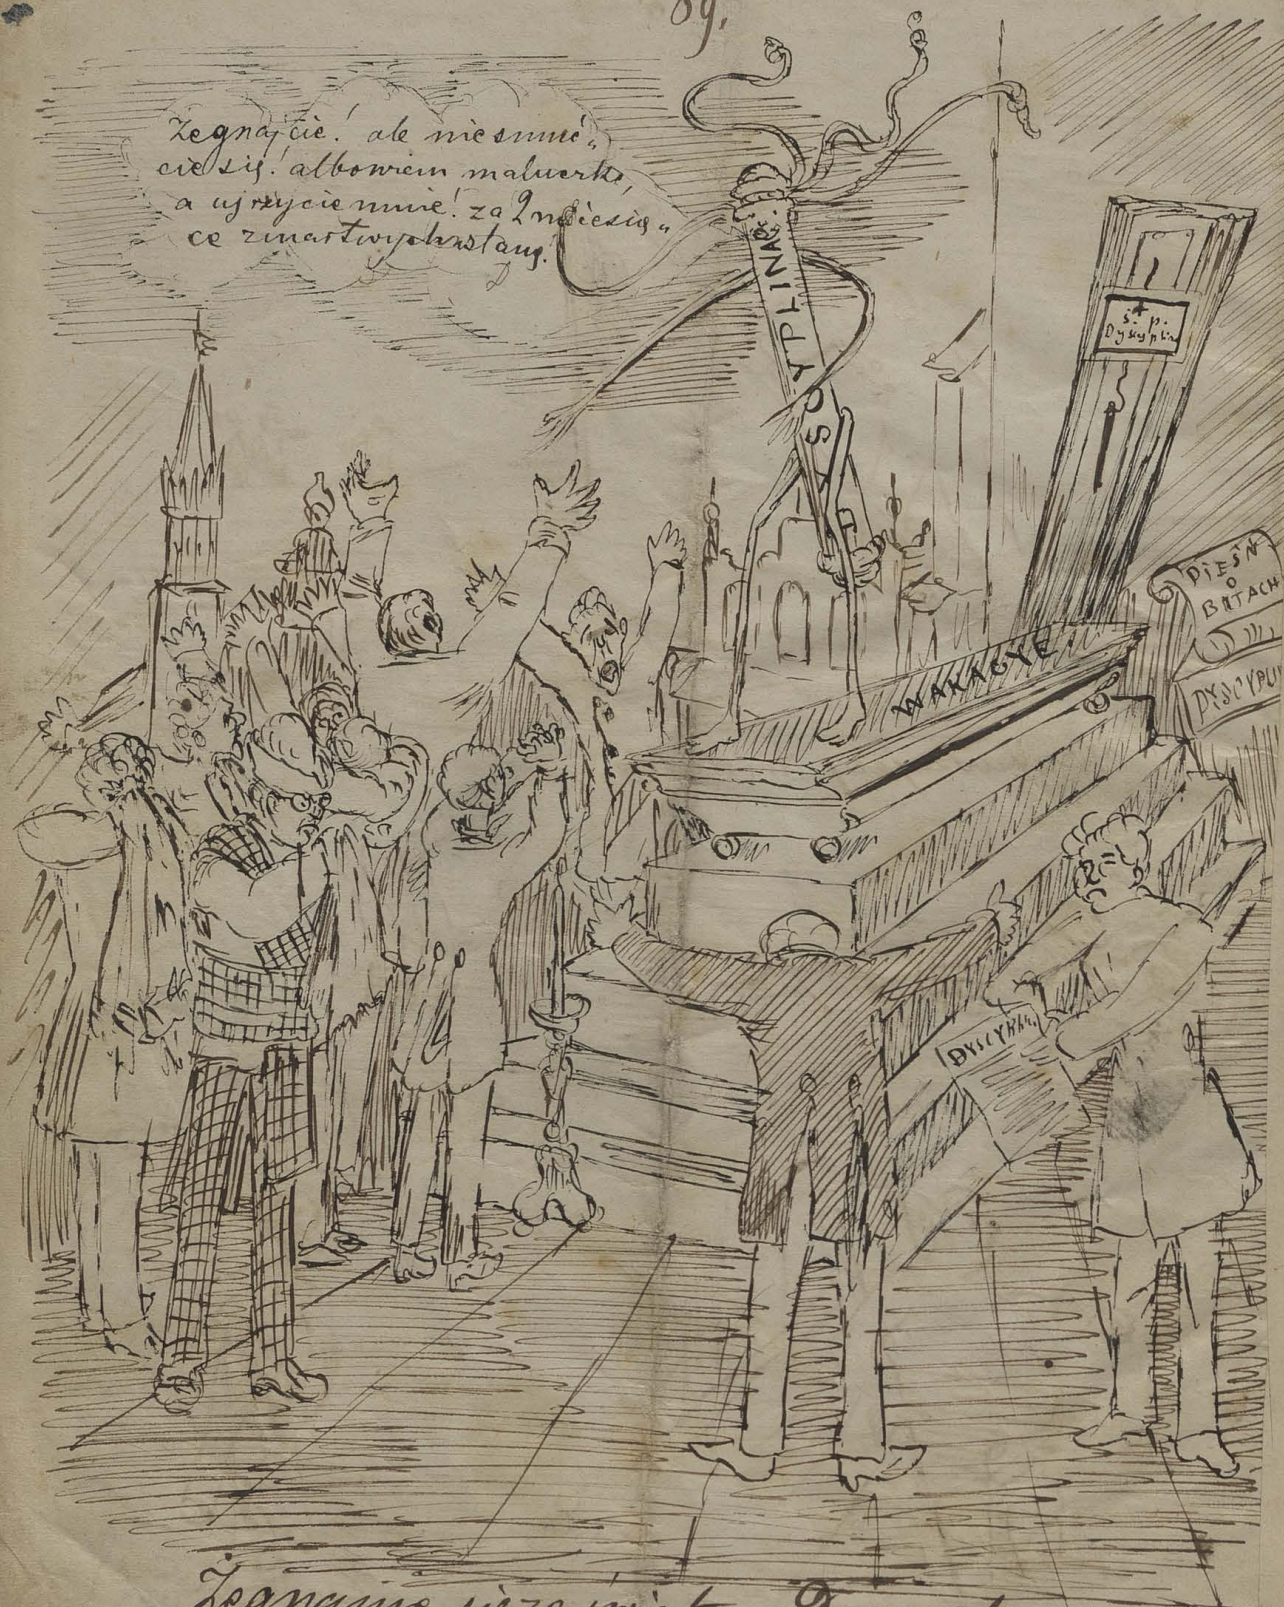 89.
Żegnajcie! ale nie smuć„
cie się! albowiem maluczko,
a ujrzycie mnie! za 2 miesią„
ce zmartwychwstanę!
DYSCYPLINA
ś. p.
Dyscyplina
PIEŚŃ
O
BATACH
WAKACYE
DYSCYPLI
DYSCYPLI
Żegnanie